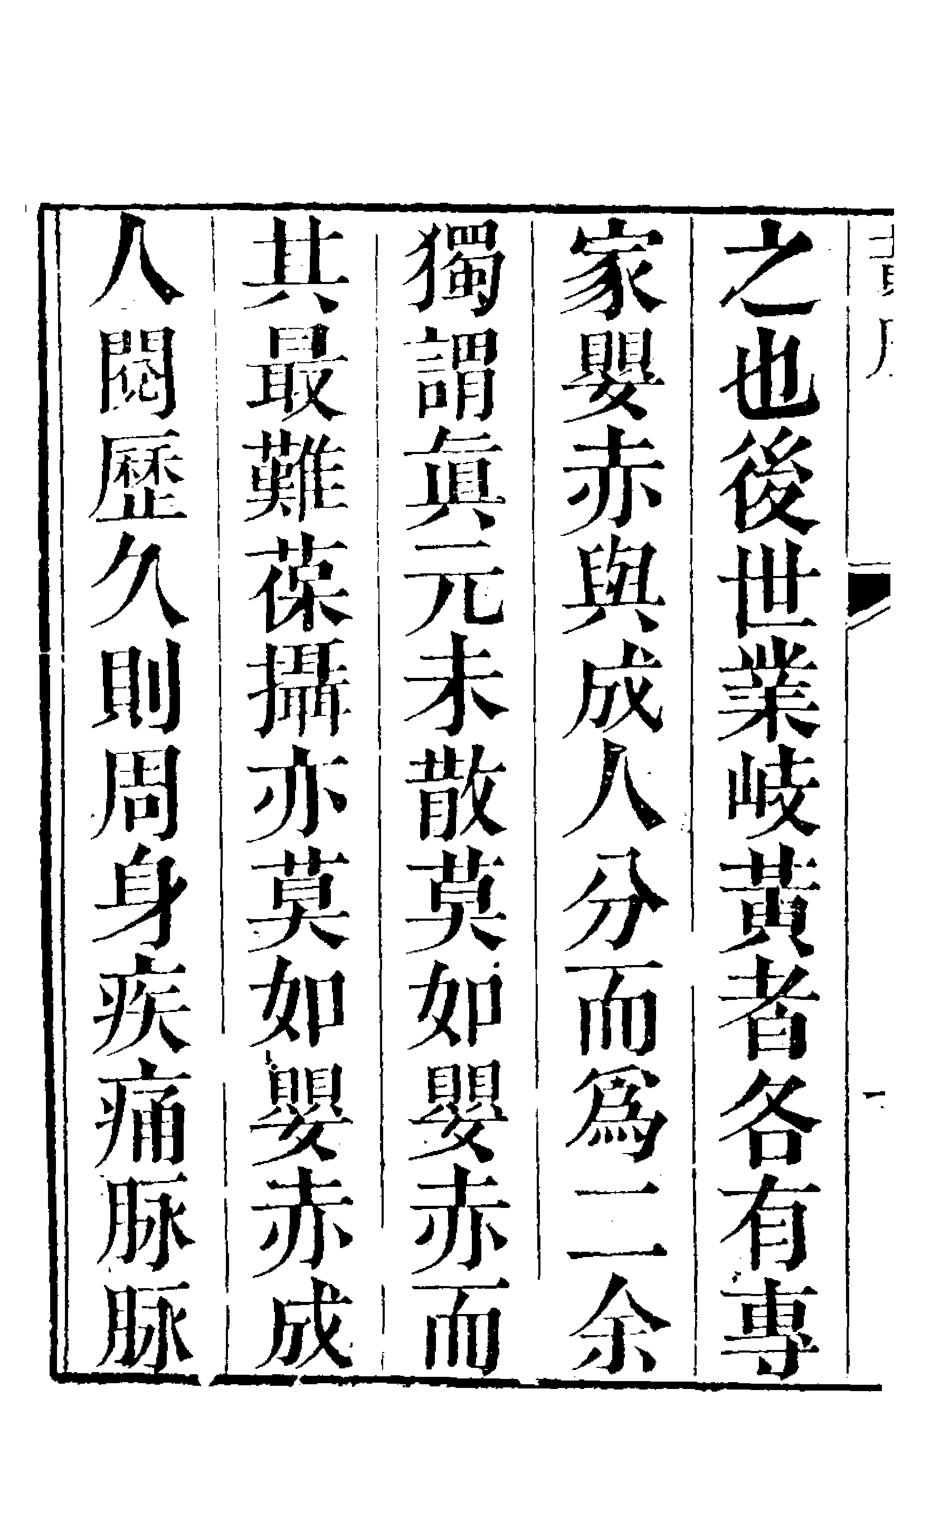 之也後世業岐黃者各有專
家嬰赤與成人分而爲二余
獨謂眞元未散莫如嬰赤而
其最難葆攝亦莫如嬰赤成
人閱歷久則周身疾痛脉脉